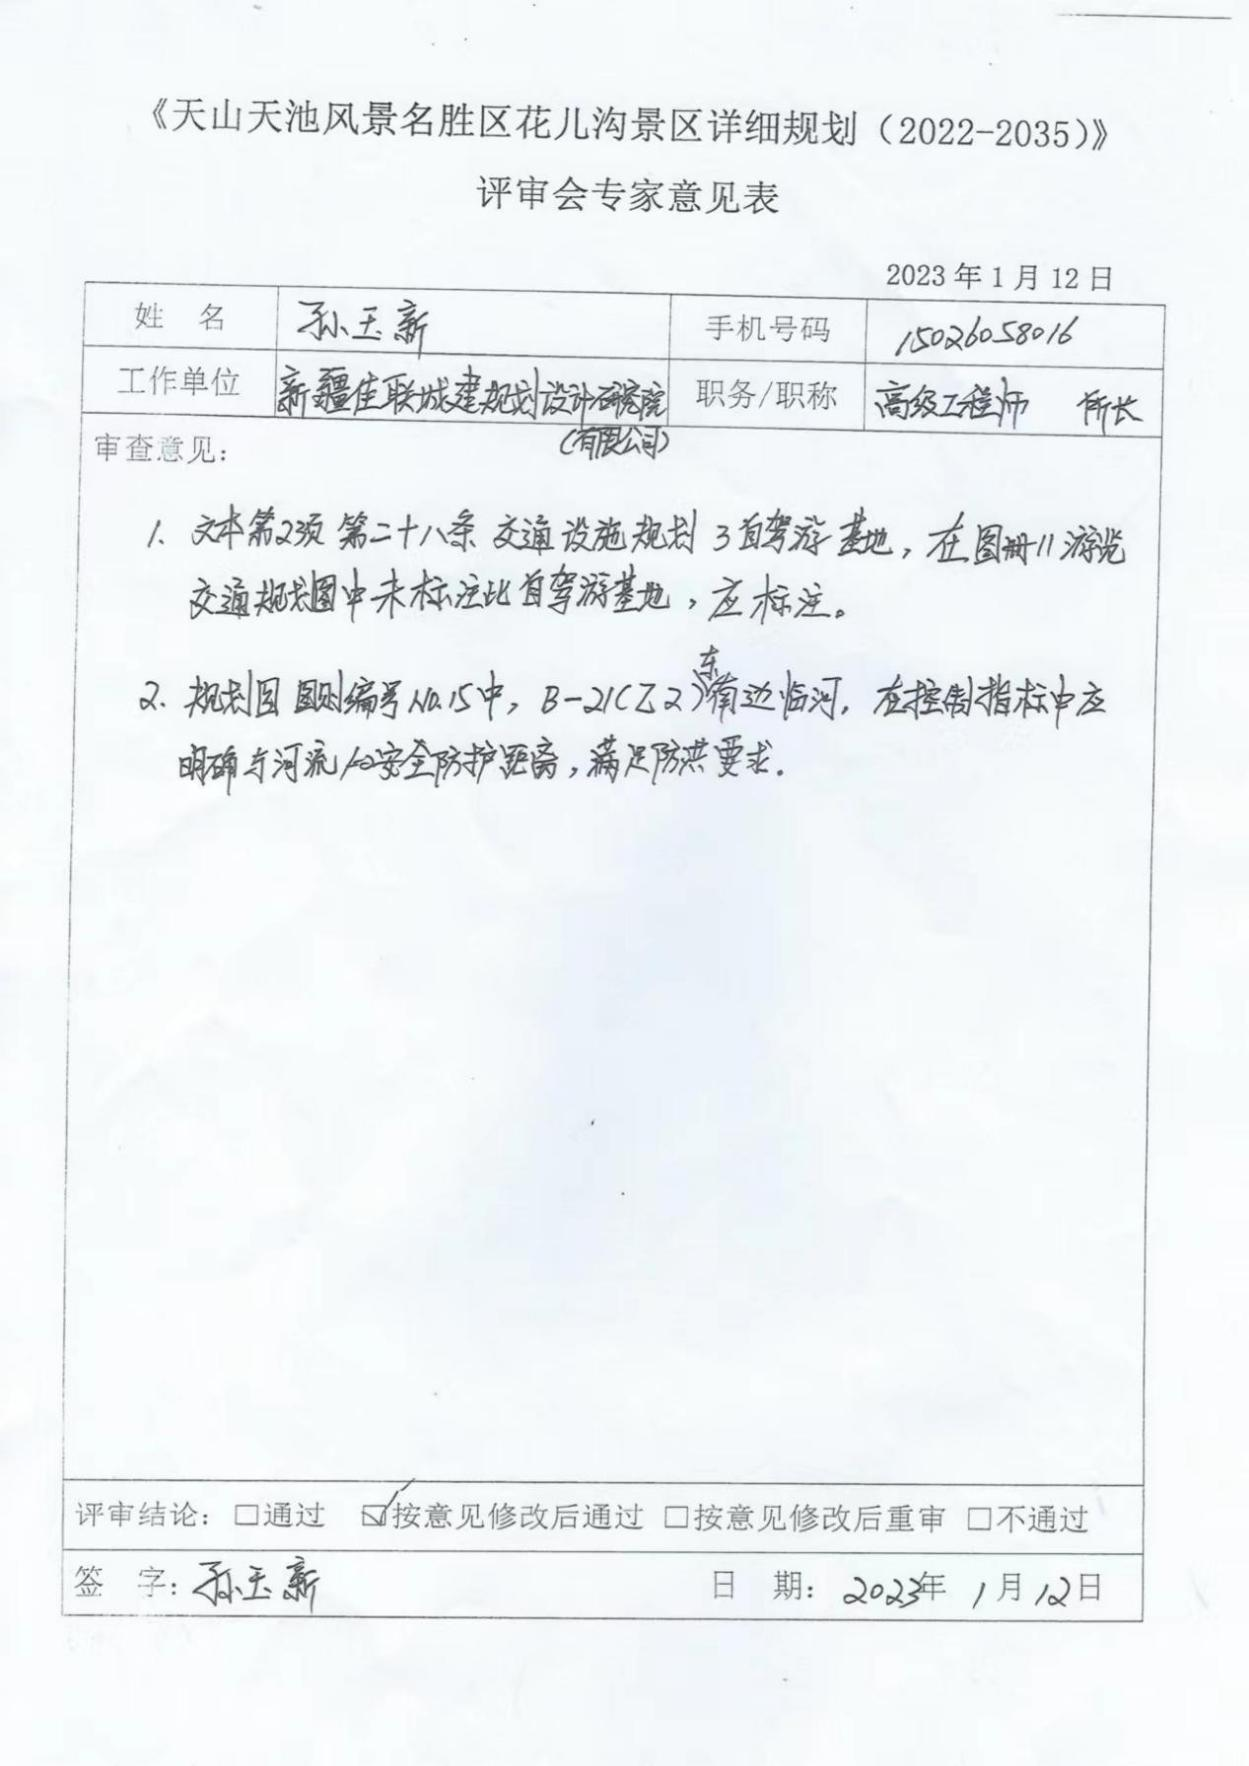 《天山天池风景名胜区花儿沟景区详细规划（2022-2035）》
评审会专家意见表
2023年1月12日
姓 名 孙玉新 手机号码 15026058016
工作单位 新疆佳联城建规划设计研究院（有限公司） 职务/职称 高级工程师 所长
审查意见：
1. 文本第2项 第二十八条 交通设施规划 3自驾游基地，在图册11游览
交通规划图中未标注此自驾游基地，应标注。
2. 规划图 图则编号No.15中，B-21（乙2）东南边临河，在控制指标中应
明确与河流的安全防护距离，满足防洪要求.
评审结论：□通过 ☑按意见修改后通过 □按意见修改后重审 □不通过
签 字：孙玉新 日 期：2023年1月12日